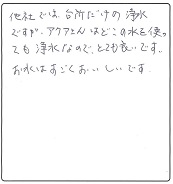 他社では、台所だけの浄水
ですが、アクアさんはどこの水を使っ
ても浄水なので、とても良いです。
お水はすごくおいしいです。